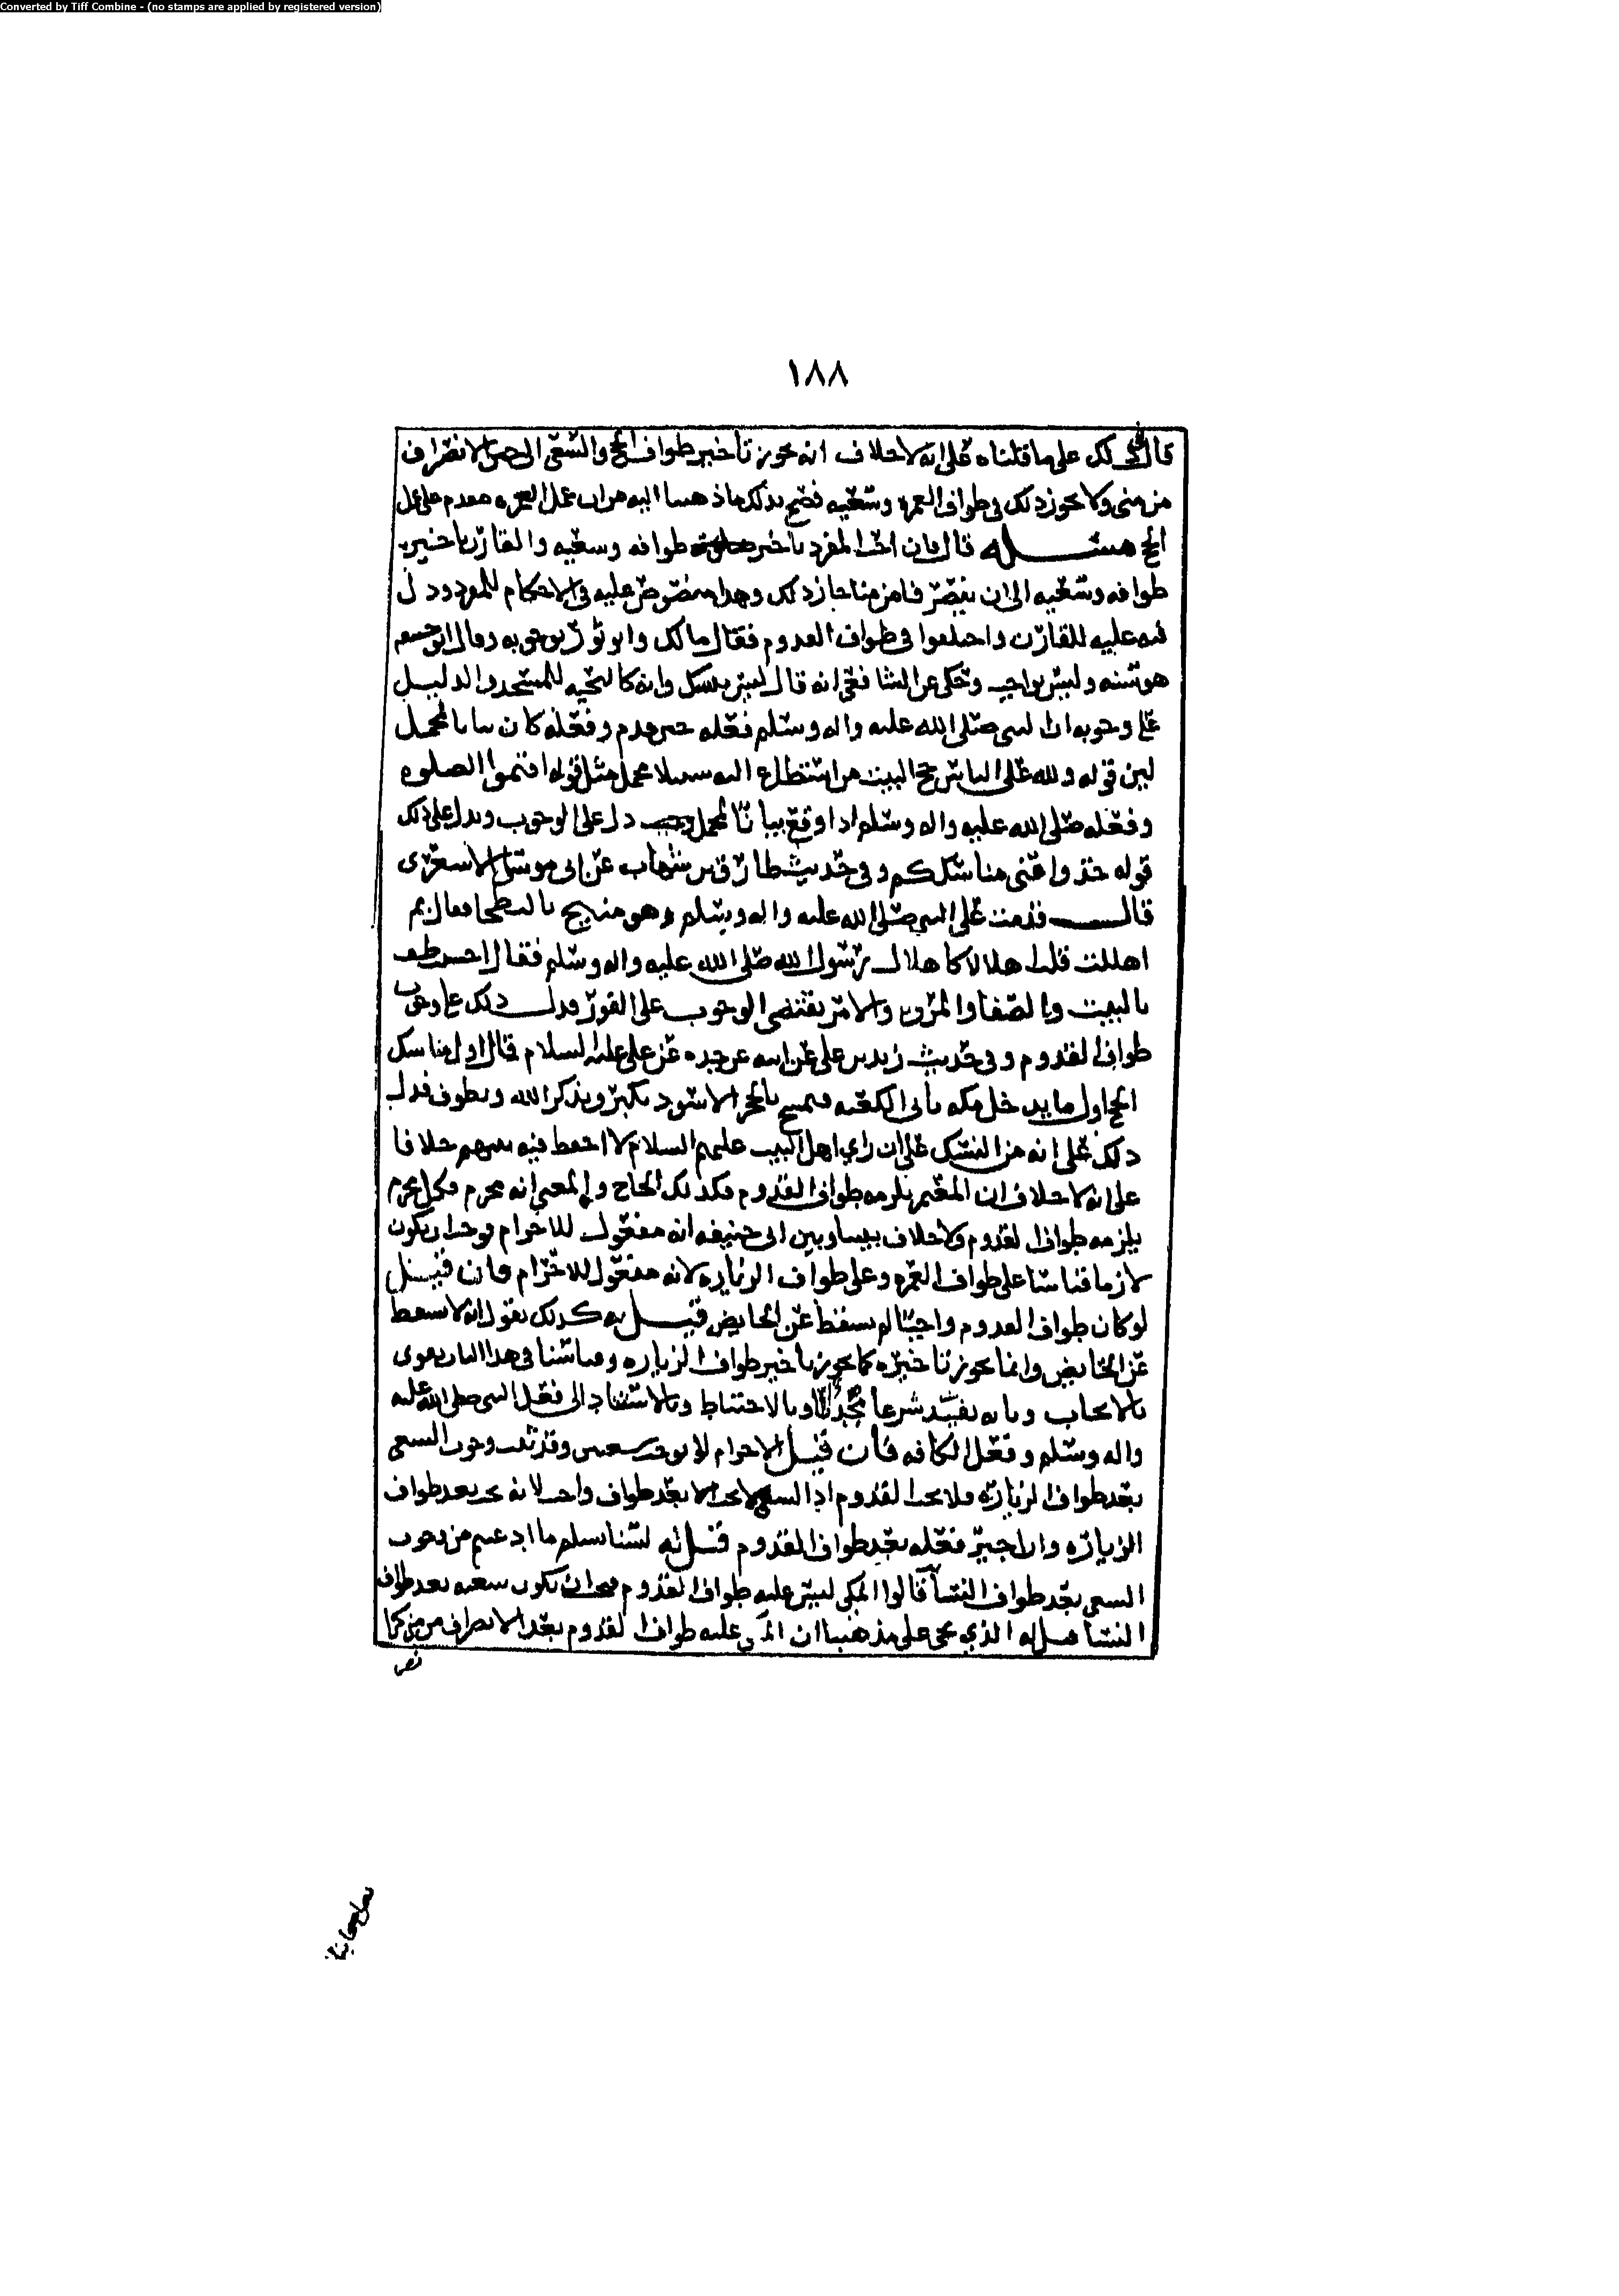 Converted by Tiff Combine - (no stamps are applied by registered version)
١٨٨
ذلك على ما قلناه على انه لا خلاف انه يجوز تأخير طواف الحج والسعي الى حين الانصراف
من منى ولا يجوز ذلك في طواف العمرة وسعيه فصح بذلك ما ذهبنا اليه من ان عمل العمره مقدم على عمل
الحج مسئله قال فان احب المفرد تاخير طوافه وسعيه والقارن تاخير
طوافه وسعيه الى ان ينصرفا من منا جاز ذلك وهذا منصوص عليه في الاحكام للمفرد ودل
فيه عليه للقارن واختلفوا في طواف القدوم فقال مالك وابو ثور بوجوبه وقال ابو حنيفه
هو سنه وليس بواجب وحكى عن الشافعي انه قال ليس بنسك وانه كالتحيه للمسجد والدليل
على وجوبه ان النبي صلى الله عليه واله وسلم فعله حين قدم وفعله كان بيانا لمجمل
لان قوله ولله على الناس حج البيت من استطاع اليه سبيلا مجمل مثل قوله اقيموا الصلوه
وفعله صلى الله عليه واله وسلم اذا وقع بيانا لمجمل دل على الوجوب ويدل على ذلك
قوله خذوا عني مناسككم وفي حديث طارق بن شهاب عن ابي موسى الاشعري
قال قدمت على النبي صلى الله عليه واله وسلم وهو منيخ بالبطحا فقال بم
اهللت قلت اهلالا كاهلال رسول الله صلى الله عليه واله وسلم فقال احسنت طف
بالبيت وبالصفا والمروه والامر يقتضي الوجوب على الفور فدل ذلك على وجوب
طواف القدوم وفي حديث زيد بن علي عن ابيه عن جده عن علي عليه السلام قال اول مناسك
الحج اول ما يدخل مكه يأتي الكعبه يتمسح بالحجر الاسود يكبر ويذكر الله ويطوف فدل
ذلك على انه من النسك على ان راي اهل البيت عليهم السلام لا احفظ فيه بينهم خلافا
على انه لا خلاف ان المعتمر يلزمه طواف القدوم فكذلك الحاج والمعنى انه محرم فكل محرم
يلزمه طواف القدوم ولا خلاف بيننا وبين ابي حنيفه انه مفعول للاحرام فوجب ان يكون
لازما قياسا على طواف العمره وعلى طواف الزياره لانه مفعول للاحرام فان قيل
لو كان طواف القدوم واجبا لم يسقط عن الحايض قيل له كذلك نقول انه لا يسقط
عن الحايض وانما يجوز تاخيره كما يجوز تاخير طواف الزياره وقياسنا في هذا الباب يقوى
بالايجاب وبانه يفيد شرعا مجددا وبالاحتياط وبالاستناد الى فعل النبي صلى الله عليه
واله وسلم وفعل الكافه فان قيل الاحرام لا يوجب سعيين وقد ثبت وجوب السعي
بعد طواف الزياره فلا يجب القدوم اذ السعي لا يجب الا بعد طواف واجب لانه يجب بعد طواف
الزياره وان اجيز فعله بعد طواف القدوم قيل له لسنا نسلم ما ادعيتم من وجوب
السعي بعد طواف النسا قالوا المكي ليس عليه طواف القدوم فيجب ان يكون سعيه بعد طواف
النسا قيل له الذي يجي على مذهبنا ان المكي عليه طواف القدوم بعد الانصراف من منى كما
نص